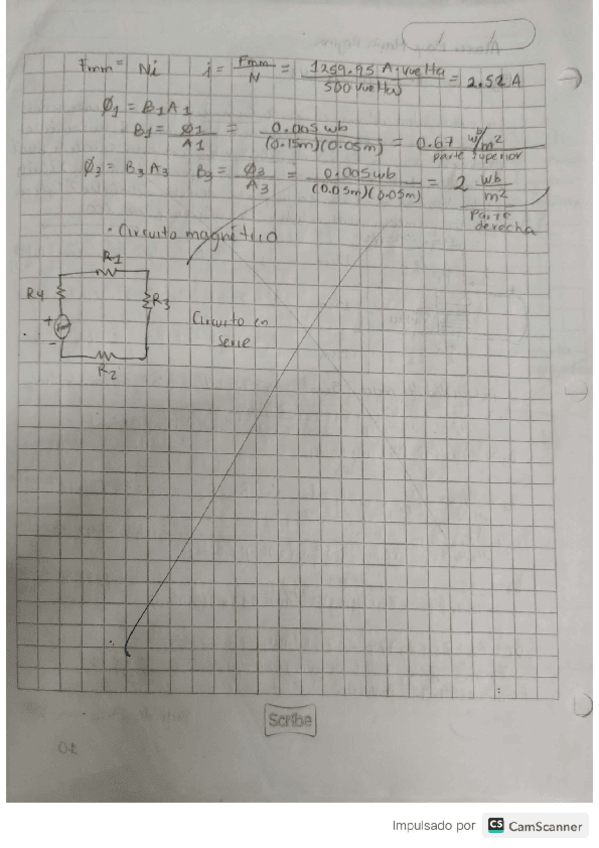 Fmm = Ni i = Fmm/N = 1259.95 A·vuelta/500 vueltas = 2.52 A
Ø1 = B1A1
B1 = Ø1/A1 = 0.005 wb/(0.15m)(0.05m) = 0.67 wb/m²
parte superior
Ø3 = B3 A3 B3 = Ø3/A3 = 0.005 wb/(0.05m)(0.05m) = 2 wb/m²
Parte
derecha
· Circuito magnético
R1
R4
R3
+
-
R2
Circuito en
serie
Scribe
Impulsado por CS CamScanner